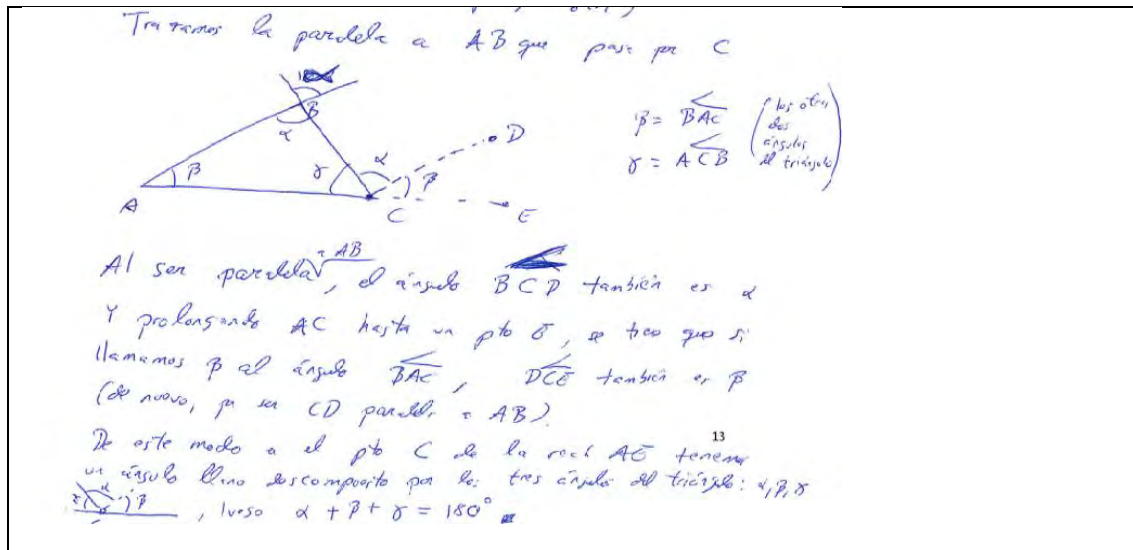 Trazamos la paralela a AB que pasa por C
B
α
β
γ
α
β
A
C
D
E
β = BAC
γ = ACB
(los otros
dos
ángulos
del triángulo)
Al ser paralela a AB, el ángulo BCD también es α
Y prolongando AC hasta un pto E, se tiene que si
llamamos β al ángulo BAC, DCE también es β
(de nuevo, por ser CD paralela a AB).
De este modo en el pto C de la recta AE tenemos
13
un ángulo llano descompuesto por los tres ángulos del triángulo: α, β, γ
γ α β, luego α + β + γ = 180°